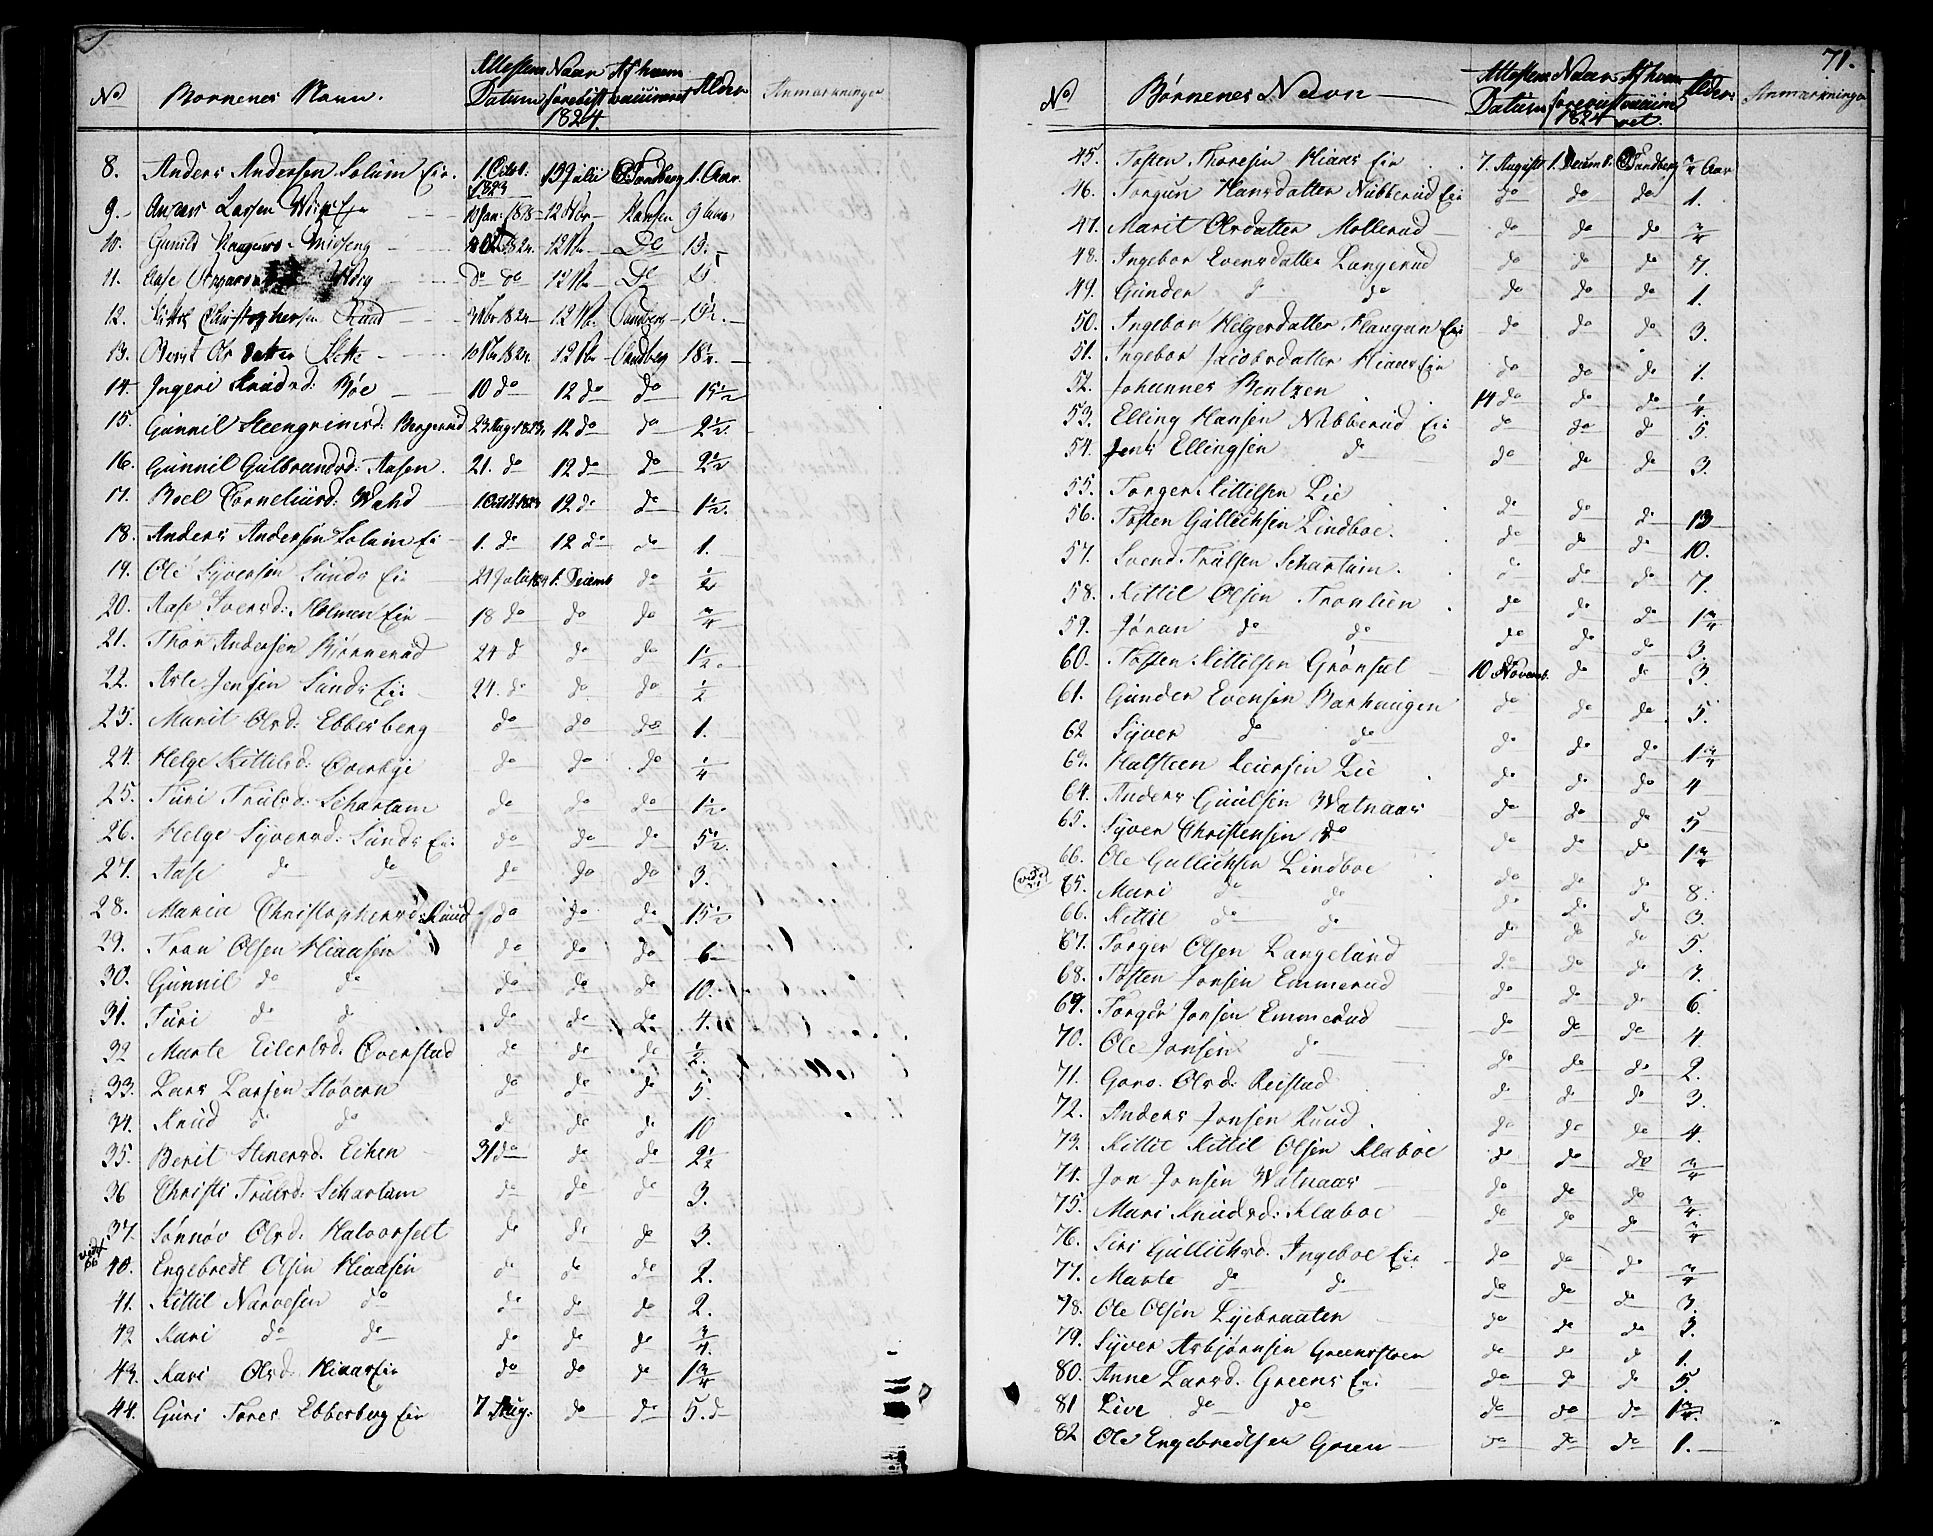 No Børnenes Navn. Attestens Datum Naar forevist 1824. Af hvem vaccineret Alder Anmærkninger
8. Anders Andersen Solum Eie. 1. Octob: 1823 13 Julii Sandberg 1. Aar.
9. Anders Larsen 10 Jan: 1818 12 Hansen 9 Aar
10. Gunild 1824. 12 Do 13.
11. Aase do do 12 Do
12. Christophersen Ruud 1824. 12 Sandberg
13. Berit Olsdatter Slette 10 1824. 12 Sandberg 18½.
14. Ingeri Knudsd: Bøe 10 do 12 do do 15½
15. Gunnil Steengrimsd: Bergerud 23 Aug 1823. 12 do do 2½.
16. Gunnil Gulbrandsd: Aasen. 21. do 12 do do 2½
17. Boel Corneliusd: Wahd 1 Octb 1823 12 do do 1½.
18. Anders Andersen Solum Ei 1. do 12 do do 1.
19. Ole Syversen Sunds Eie 21 Juli 1824 1. Decemb do ½
20. Aase Iversd: Holmen Eie 18 do do do ¾
21. Thor Andersen Bjørnerud 24 d do do 1½.
22. Asle Jensen Sunds Eie 24. do do do ½
23. Marit Olsd: Ebbesberg do do do 1.
24. Helge Kittilsd: Overbye do do do ¼
25. Turi Trulsd: Schartum do do do 1½.
26. Helge Syversd: Sunds Eie do do do 5½.
27. Aase do do do do do 3.
28. Maria Christophersd: Ruud do do do 15½
29. Tron Olsen Hiaasen do do do 6
30. Gunnil do do do do do 10.
31. Turi do do do do do 4.
32 Marte Eilertsd. Overstad do do do ½.
33. Lars Larsen Støvern do do do 5.
34. Knud do do do do do 10
35. Berit Steneresd. Eichen 31 do do do 2½
36 Christi Trulsd: Schartum do do do 3.
37. Sønnøv Olsd. Halvorselt do do do 3.
40. Engebredt Olsen Hiaasen do do do 2.
41. Kittil Narvesen do do do do 2.
42 Kari do do do do do ¾.
43. Kari Olsd. Hiaas Eie do do do 1¾
44. Guri Tores Ebbesberg Eie 7 Aug. do do 5. d
71.
No Børnenes Navn Attestens Datum Naar forevist 1824 Af hvem vaccineret. Alder Anmærkninger
45. Tosten Thoresen Hiaas Eie 7 August 1. Decemb. Sandberg ¾ Aar
46. Torgun Hansdatter Nubberud Eie do do do 1.
47. Marit Olsdatter Mollerud do do do ¾
48. Ingebor Evensdatter Langerud do do do 7.
49. Gunder do do do do do 1.
50. Ingebor Helgesdatter Haugan Eie do do do 3.
51. Ingebor Jacobsdatter Hiaas Eie do do do 1.
52. Johannes Bentzen 14 do do do ¼.
53. Elling Hansen Nubberud Eie do do do 5.
54. Jens Ellingsen do do do do 3.
55. Torger Kittilsen Lie do do do 13
56. Tosten Gullichsen Lindboe. do do do 10.
57. Svend Trulsen Schartum. do do do 7.
58. Kittil Olsen Tronlien do do do 1¾
59. Jøran do do do do do 3.
60. Tosten Kittilsen Grønset 10 Novemb. do do 3.
61. Gunder Evensen Barhaugen do do do 5.
62 Syver do do do do do 1¾
63. Halsteen Reiersen Lie do do do 4
64. Anders Guulsen Watnaas do do do 5
65. Syver Christensen do do do do 1¾
66. Ole Gullichsen Lindboe do do do 8.
65. Mari do do do do do 3.
66. Kittil do do do do do 5.
67. Torger Olsen Langeland do do do 7.
68. Tosten Jonsen Emmerud do do do 6.
69. Torger Jonsen Emmerud do do do 4.
70. Ole Jonsen do do do do 2.
71. Goro. Olsd: Reistad do do do 3.
72. Anders Jonsen Ruud do do do 4.
73. Kittil Kittil Olsen Klaboe do do do ¾
74. Jon Jonsen Watnaas do do do ¾.
75. Mari Knudsd: Klaboe do do do ¾
76. Siri Gullichsd. Ingeboe Eie do do do ¾
77. Marte do do do do do 3.
78. Ole Olsen Lyebraaten do do do 3.
79. Syver Asbjørnsen Greensteen do do do 1.
80. Anne Larsd. Greens Eie do do do 5.
81 Live do do do do do 1¾.
82 Ole Engebredtsen Green do do do 1.